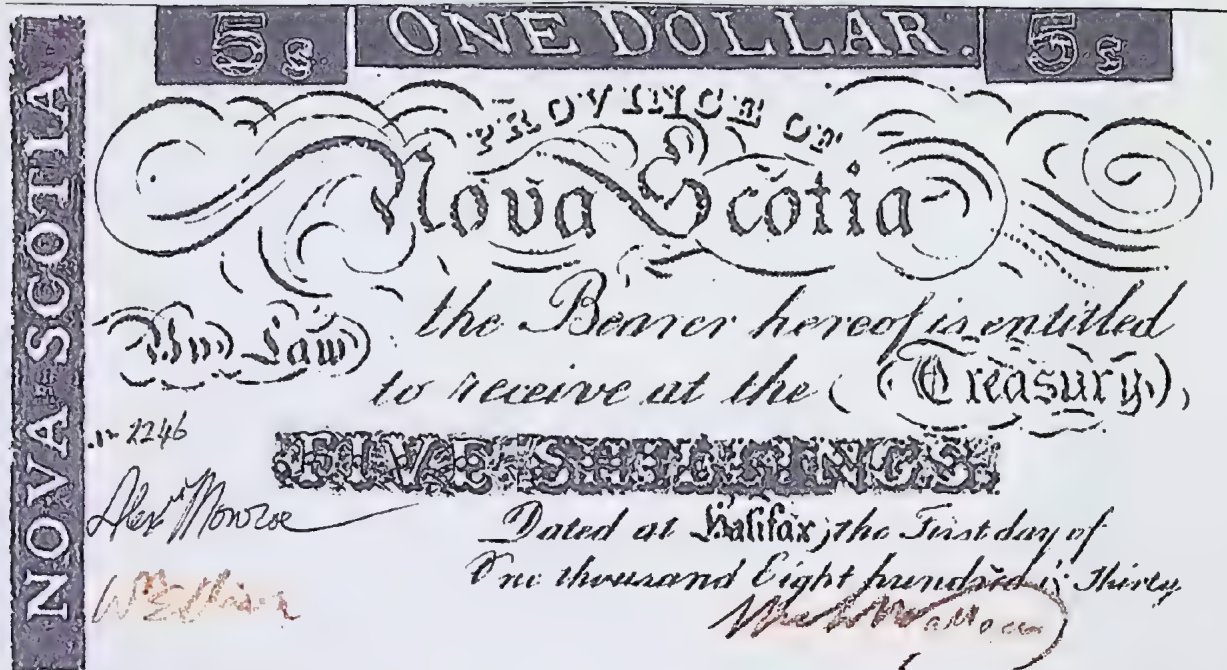 5s ONE DOLLAR. 5s
NOVA-SCOTIA
PROVINCE OF
Nova Scotia
By Law the Bearer hereof is entitled
to receive at the (Treasury),
No 2246
FIVE SHILLINGS
Alexr Monroe
Dated at Halifax, the First day of
One thousand Eight hundred & Thirty